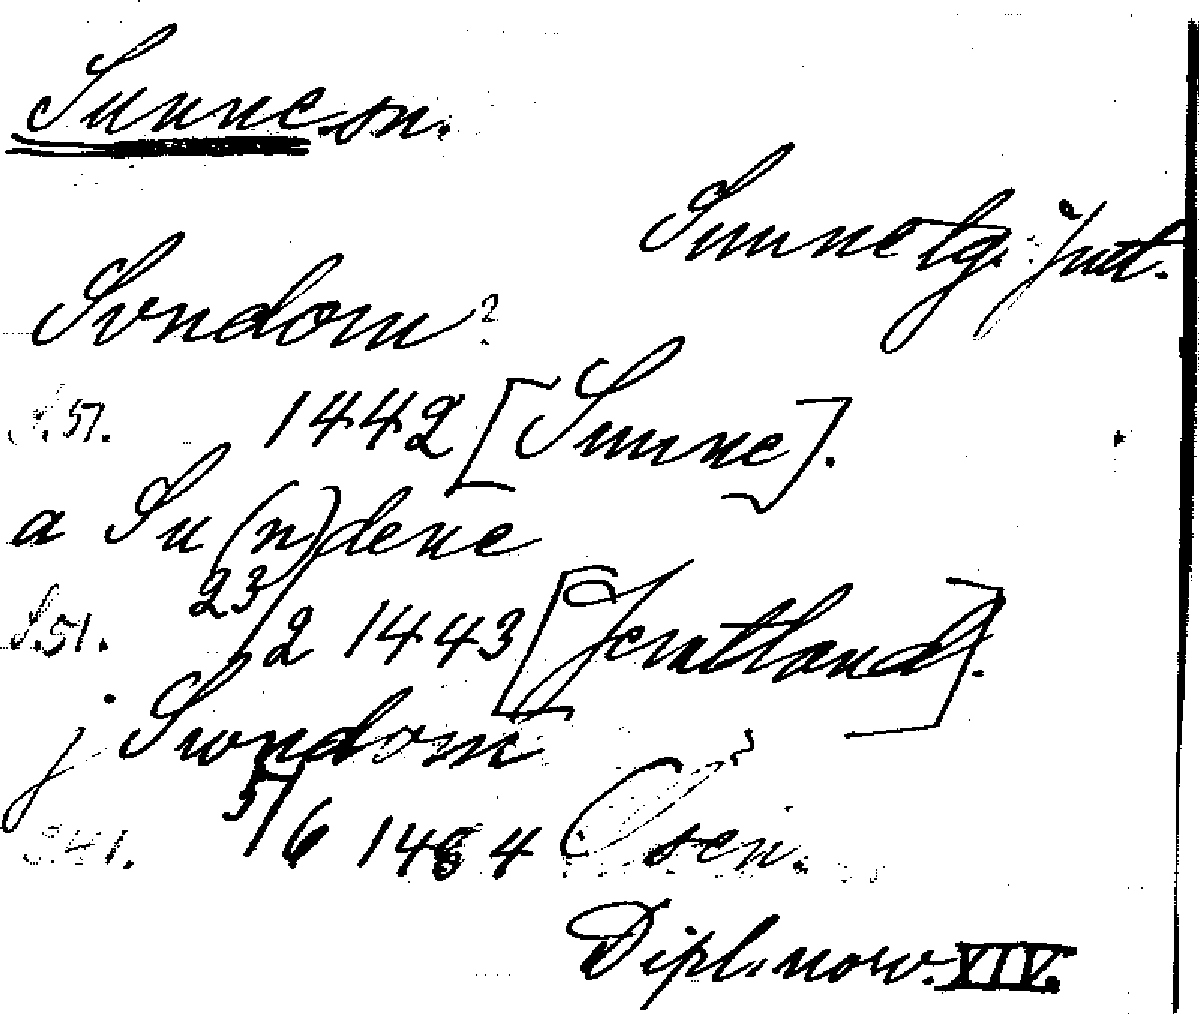 Sunne sn.
Sunne tg. Jmtl.
Svndom?
S. 51. 1442 [Sunne].
a Su(n)dene
S. 51. 23/2 1443 [Jemtland].
j Swndom
S. 41. 5/6 1484 Osen.
Dipl. norv. XIV.